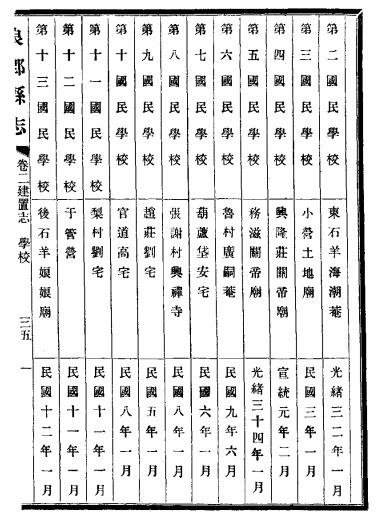 第二國民學校 東石羊海潮菴 光緒三二年一月
第三國民學校 小營土地廟 民國三年一月
第四國民學校 興隆莊關帝廟 宣統元年二月
第五國民學校 務滋關帝廟 光緒三十四年一月
第六國民學校 魯村廣嗣菴 民國九年六月
第七國民學校 葫蘆垡安宅 民國六年一月
第八國民學校 張謝村興禪寺 民國八年一月
第九國民學校 趙莊劉宅 民國五年一月
第十國民學校 官道高宅 民國八年一月
第十一國民學校 梨村劉宅 民國十一年一月
第十二國民學校 于管營 民國十一年一月
第十三國民學校 後石羊娘娘廟 民國十二年一月
良鄉縣志 卷二建置志 學校 三五